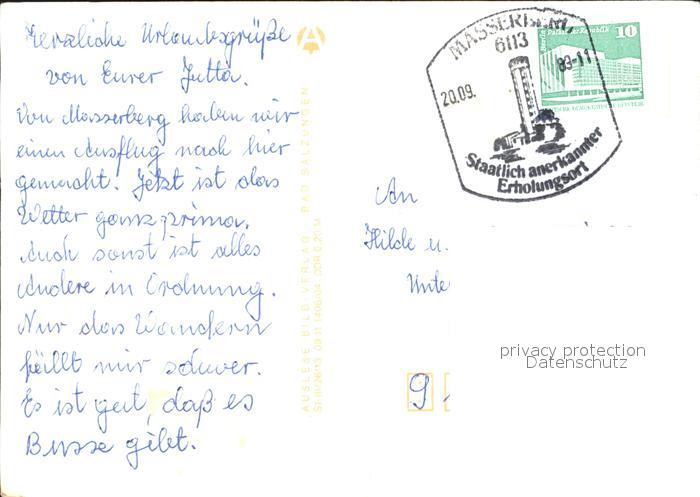 Herzliche Urlaubsgrüße
von Eurer Jutta.
Von Masserberg haben wir
einen Ausflug nach hier
gemacht. Jetzt ist das
Wetter ganz prima.
Auch sonst ist alles
Andere in Ordnung.
Nur das Wandern
fällt mir schwer.
Es ist gut, daß es
Busse gibt.
AUSLESE BILD-VERLAG BAD SALZUNGEN
MASSERBERG
6113
20.09. 89-11
Staatlich anerkannter
Erholungsort
Berlin Palast der Republik 10
An
Hilde u.
Unte
9
privacy protection
Datenschutz